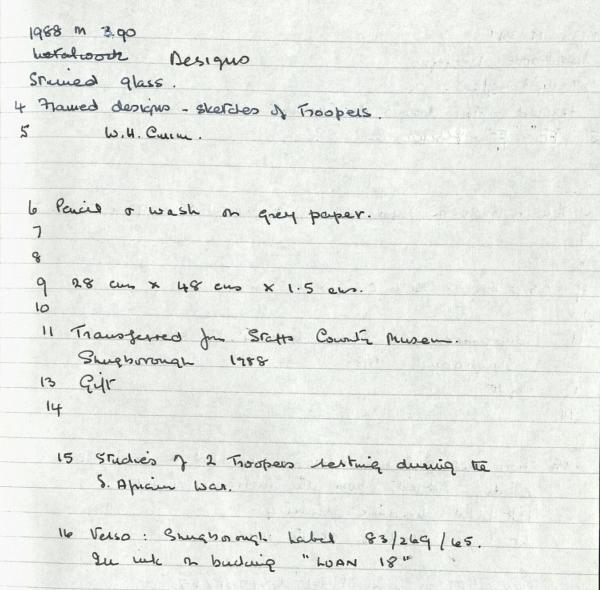 1988 m 3.90
Metalwork Designs
Stained glass.
4 Framed designs - sketches of Troopers.
5 W.H.
6 Pencil & wash on grey paper.
7
8
9 28 cms x 48 cms x 1.5 cms.
10
11 Transferred from Staffs County Museum.
Shugborough 1988
13 Gift
14
15 Studies of 2 Troopers resting during the
S. African War.
16 Verso: Shugborough Label 83/269/65.
In ink on backing "LOAN 18"